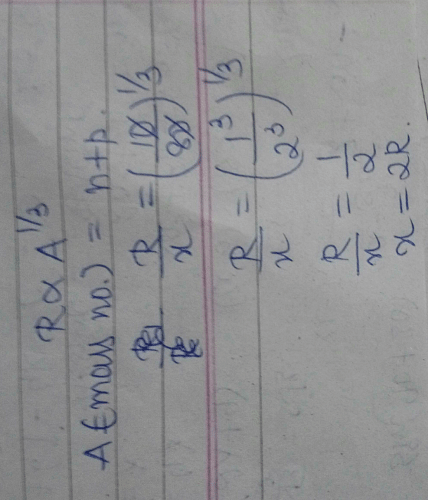 R ∝ A^1/3
A (mass no.) = n+p
R/x = (1X/8X)^1/3
R/x = (1^3/2^3)^1/3
R/x = 1/2
x = 2R.